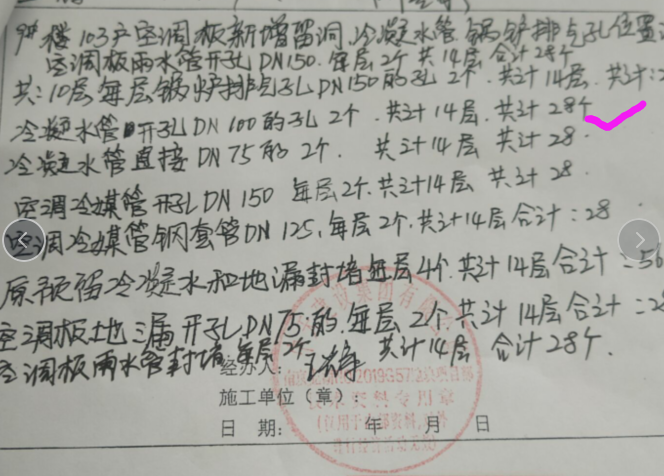 9#楼103户空调板新增留洞,冷凝水管锅炉排气孔位置
空调板雨水管开孔DN150.每层2个共14层合计28个
共:10层每层锅炉排气孔DN150的孔2个.共计14层.共计:2
冷凝水管开孔DN100的孔2个.共计14层.共计28个
冷凝水管直接DN75的2个.共计14层 共计28.
空调冷媒管开孔DN150 每层2个.共计14层 共计28.
空调冷媒管钢套管DN125,每层2个.共计14层合计:28
原预留冷凝水和地漏封堵每层4个.共计14层合计:56
空调板地漏开孔DN75的.每层2个共计14层合计:28
空调板雨水管封堵每层2个 共计14层 合计28个.
经办人:
施工单位(章):
日 期: 年 月 日
资料专用章